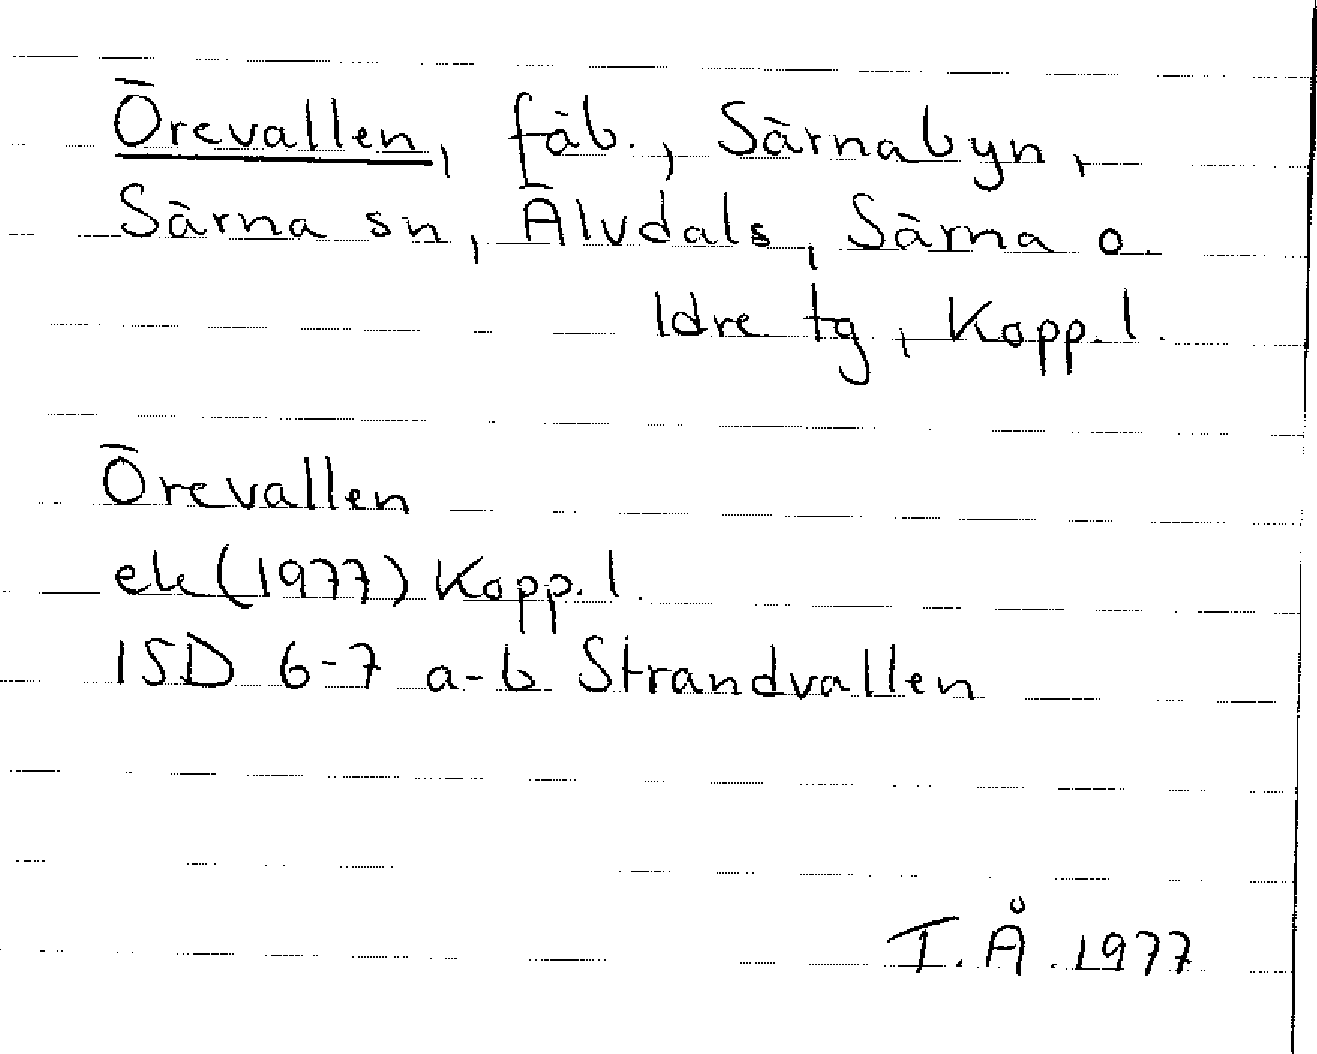 Örevallen, fäb., Särnabyn,
Särna sn, Älvdals, Särna o.
Idre tg, Kopp. l.
Örevallen
ek (1977) Kopp. l.
15D 6-7 a-b Strandvallen
I.Å. 1977